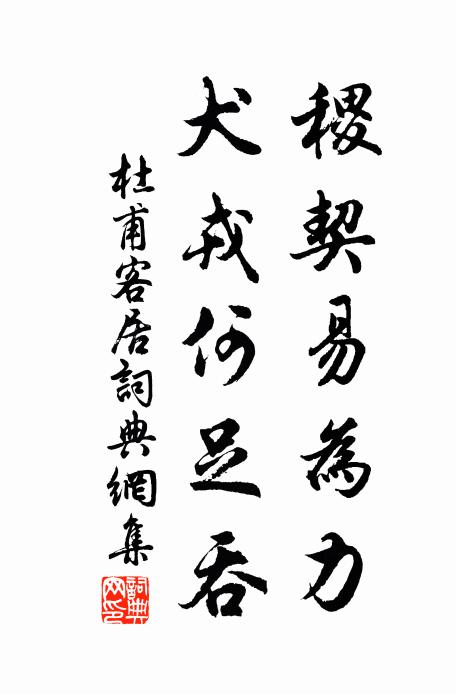 稷契易為力
犬戎何足吞
杜甫客居詞典網集
詞典網印